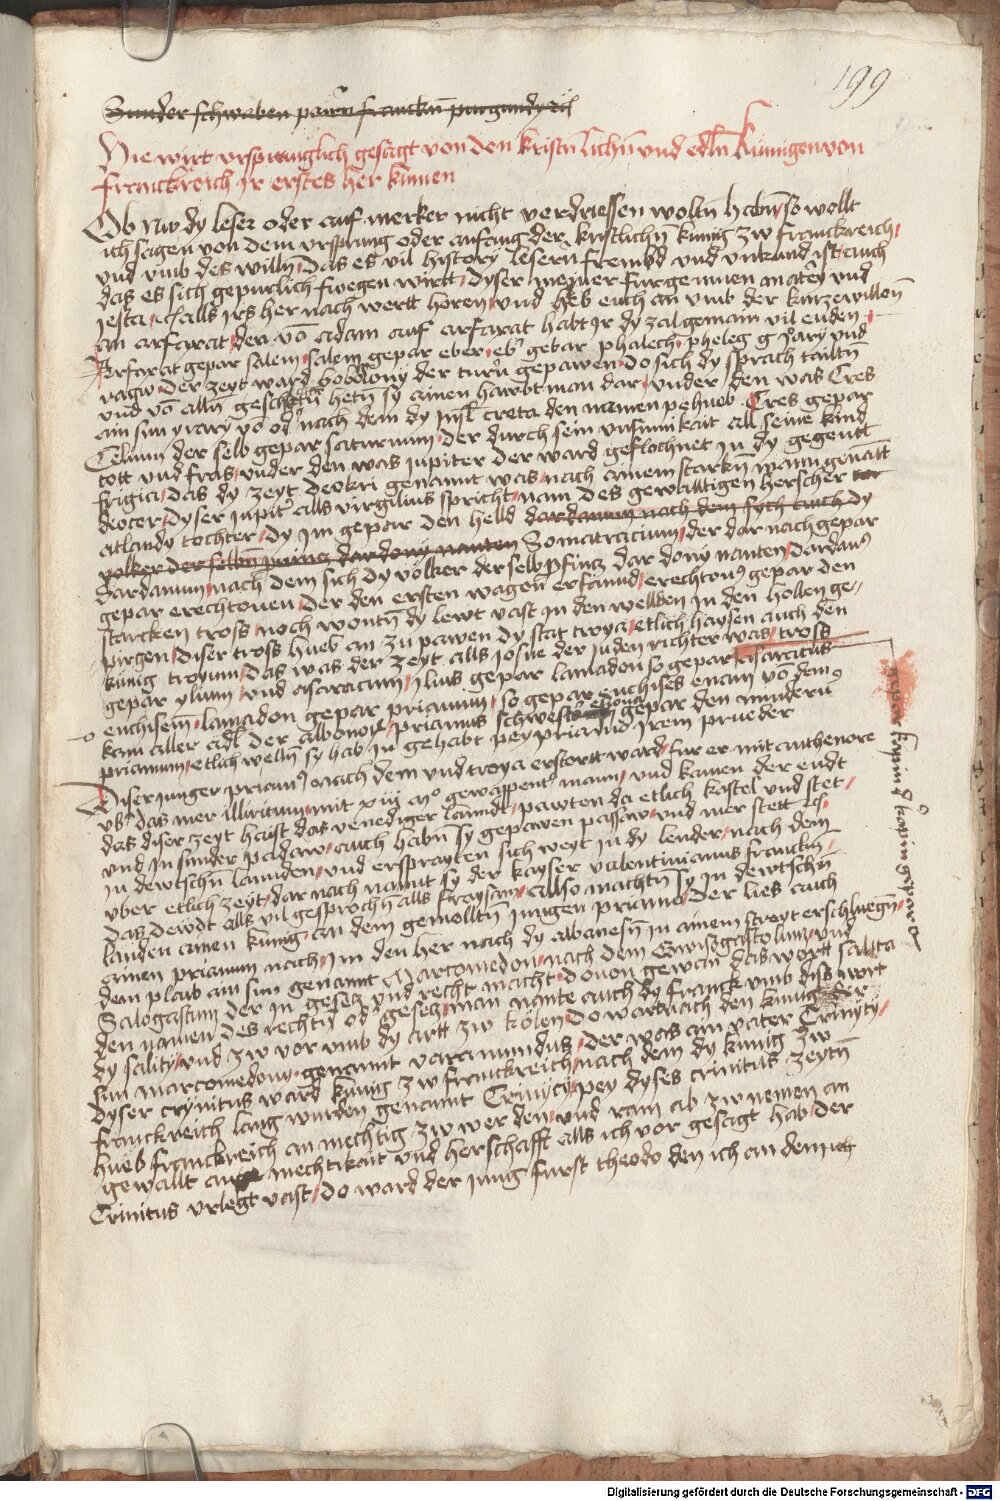 199
Sunder schwaben pairn franckn̄ purgundy ꝛc
Hie wirt vrsprunglich gesagt von den kristnlichn̄ vnd edln̄ kunigen von
franckreich Jr erstes her kumen
Ob Nw dy leser oder auf merker nicht verdriessen woltn̄ habn̄ / so wollt
ich sagen von dem vrsprung oder anfang der kristlichn̄ kunig zw franckreich /
vnd vmb des willn̄ / das es vil hystory lesern frembd vnd vnkund ist / auch
das es sich gepurlich fuegen wirtt / dyser meiner furgenumen matery vnd
Jesta / alls irs her nach wertt horen / vnd heb euch an vmb der kurzewillen̄
an arfarat / den vō adam auf arfarat habt ir dy zal gemain vil enden /
Arfarat gepar salem / salem gepar eber / eb' gebar phalech / pheleg g yary vnd
ragw der zeyt ward babolony der turn̄ gepawen / do sich dy sprach tailtn̄
vnd vō alln̄ hetn̄ sy ainen hawbt man dar / vnder den was Cres
ain sun yrary vō od' nach dem dy Insl creta den namen pehueb / Cres gepar
Celium der selb gepar saturnum / der durch sein vnsinnikait all seine kind
tott vnd fras / vnder den was Jupiter der ward geflochnet in dy gegentt
frigia / das dy zeyt deokri genannt was / nach ainem starkn̄ mann genātt
deocer / dyser Jupit' alls virgilius spricht / nam des gewalltigen herscher
atlandy tochter / dy im gepar den helld dardanum nach dem sych auch dy
volker der selbn̄ dardony nanten Somatracium / der dar nach gepar
dardanum / nach dem sich dy volker der selb pfünz dar dony nanten / dardan9
gepar erechtonen / der den ersten wagen̄ erfannd / erechton9 gepar den
starcken tross / noch wontn̄ dy lewt vast in den wellden in den hollen ge-
pirgen / diser tross hueb an zu pawen dy stat troya / etlich haysen auch den
kunig troyum / das was der zeyt alls Josue der Juden richter was / tross
gepar ylium / vnd asaracum / ilius gepar lamadon so gepar asaracus
enchisem̄ / lamadon gepar priamum / so gepar enchises eneam vō dem9
kam aller adl der albonoy / priamus schwester gepar den mindern̄
priamum / etlich welln̄ sy hab in gehabt pey priamo irem prueder
Diser junger priam9 / nach dem vnd troya erstortt ward / fur er mit anthenore
vb' das mer illiricum / mit xiiij m̊ gewappent' mann / vnd kamen der endt
das diser zeyt haist das venediger lanndt / pawten da etlich kastel vnd stet /
vnd in sunder padaw / auch habn̄ sy gepawen passaw / vnd mer stett
in dewtschn̄ lannden / vnd ersprayten sich weyt in dy lender / nach dem
vber etlich zeyt / dar nach nannt sy der kayser valentinianus franckn̄ /
das dewdt alls vil gesprochn̄ alls fraysam / allso machtn̄ sy in dewtschn̄
landen ainen kunig / an dem gemelltn̄ iungen priamo / der lies auch
ainen priamum nach / im den her nach dy albanesn̄ in ainem streyt erschluegn̄ /
dem plaib ain sun genannt Marcomedon / nach dem vnd
Salogastum der in gesetz vnd recht macht / douon gewan das wortt salica
den namen des rechtn̄ od' gesetz / man nante auch dy franck vmb diss wort
dy sality / vnd zw vor vmb dy artt zw kolen / do wart nach den kunig der
sun marcomedony / genannt varamundus / der was ain vater Crinyty /
dyser crynitus ward kunig zw franckreich / nach dem dy kunig zw
franckreich lang wurden genannt Crinity / pey dyses crinitus zeytn̄
hueb franckreich an mechtig zw werden / vnd ram ab zw nemen an
gewallt an mechtikait vnd herschafft alls ich vor gesagt hab / der
Crinitus vrlegt vast / do ward der jung furst theodo den ich an dem
gepar
Digitalisierung gefördert durch die Deutsche Forschungsgemeinschaft - DFG